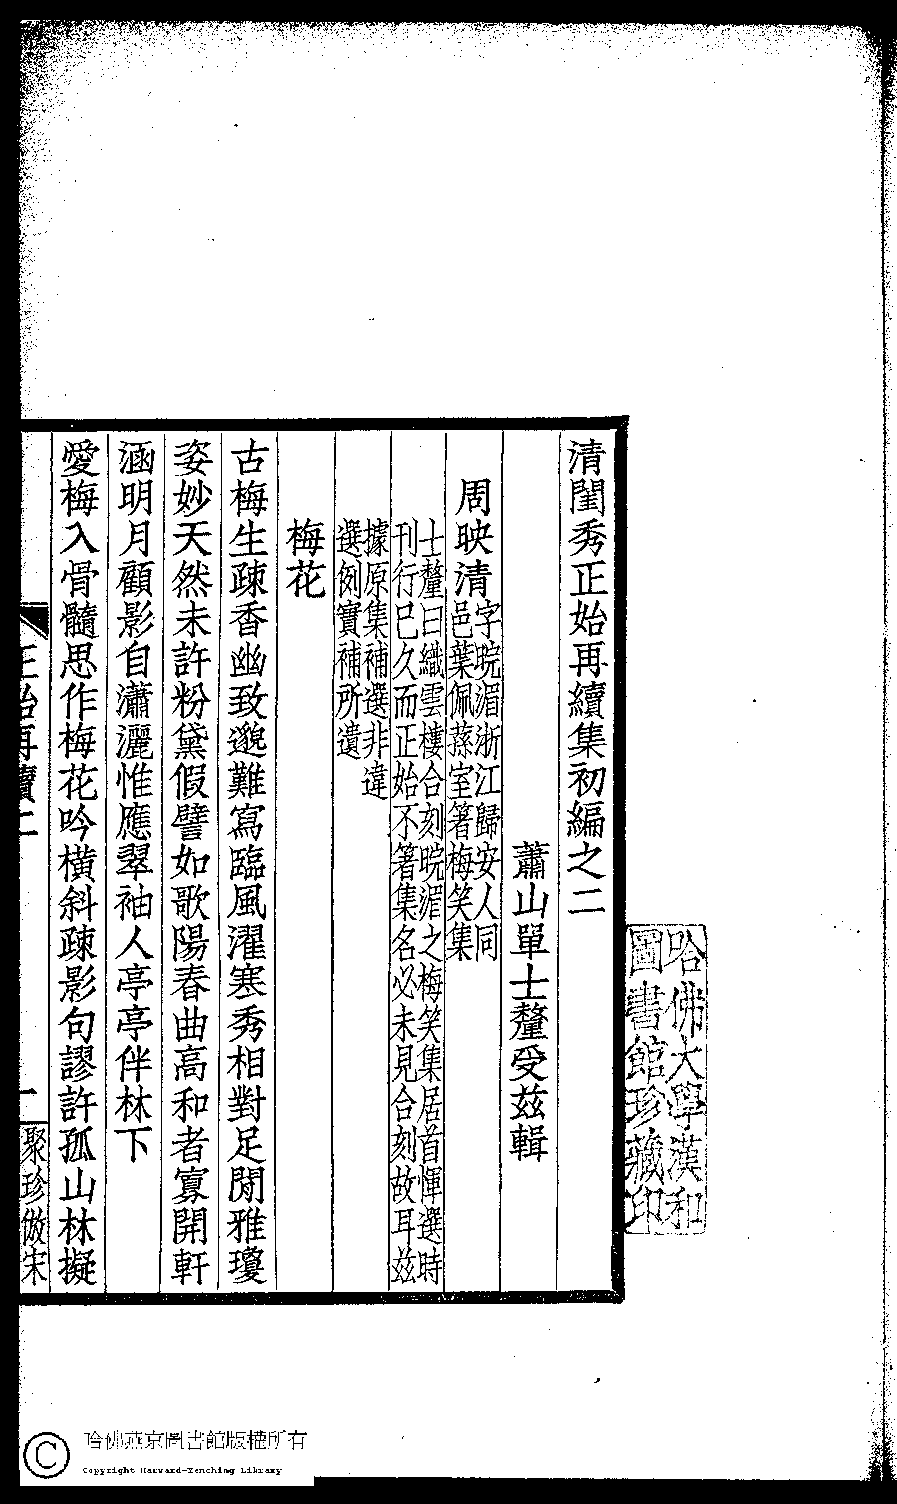 清閨秀正始再續集初編之二
蕭山單士釐受茲輯
周映清字晥湄浙江歸安人同
邑葉佩蓀室箸梅笑集
士釐曰織雲樓合刻晥湄之梅笑集居首惲選時
刊行已久而正始不箸集名必未見合刻故耳茲
據原集補選非違
選例實補所遺
梅花
古梅生疎香幽致邈難寫臨風濯寒秀相對足閒雅瓊
姿妙天然未許粉黛假譬如歌陽春曲高和者寡開軒
涵明月顧影自瀟灑惟應翠袖人亭亭伴林下
愛梅入骨髓思作梅花吟橫斜疎影句謬許孤山林擬
正始再續二
一
聚珍倣宋
哈佛大學漢和
圖書館珍藏印
哈佛燕京圖書館版權所有
Copyright Harvard-Yenching Library